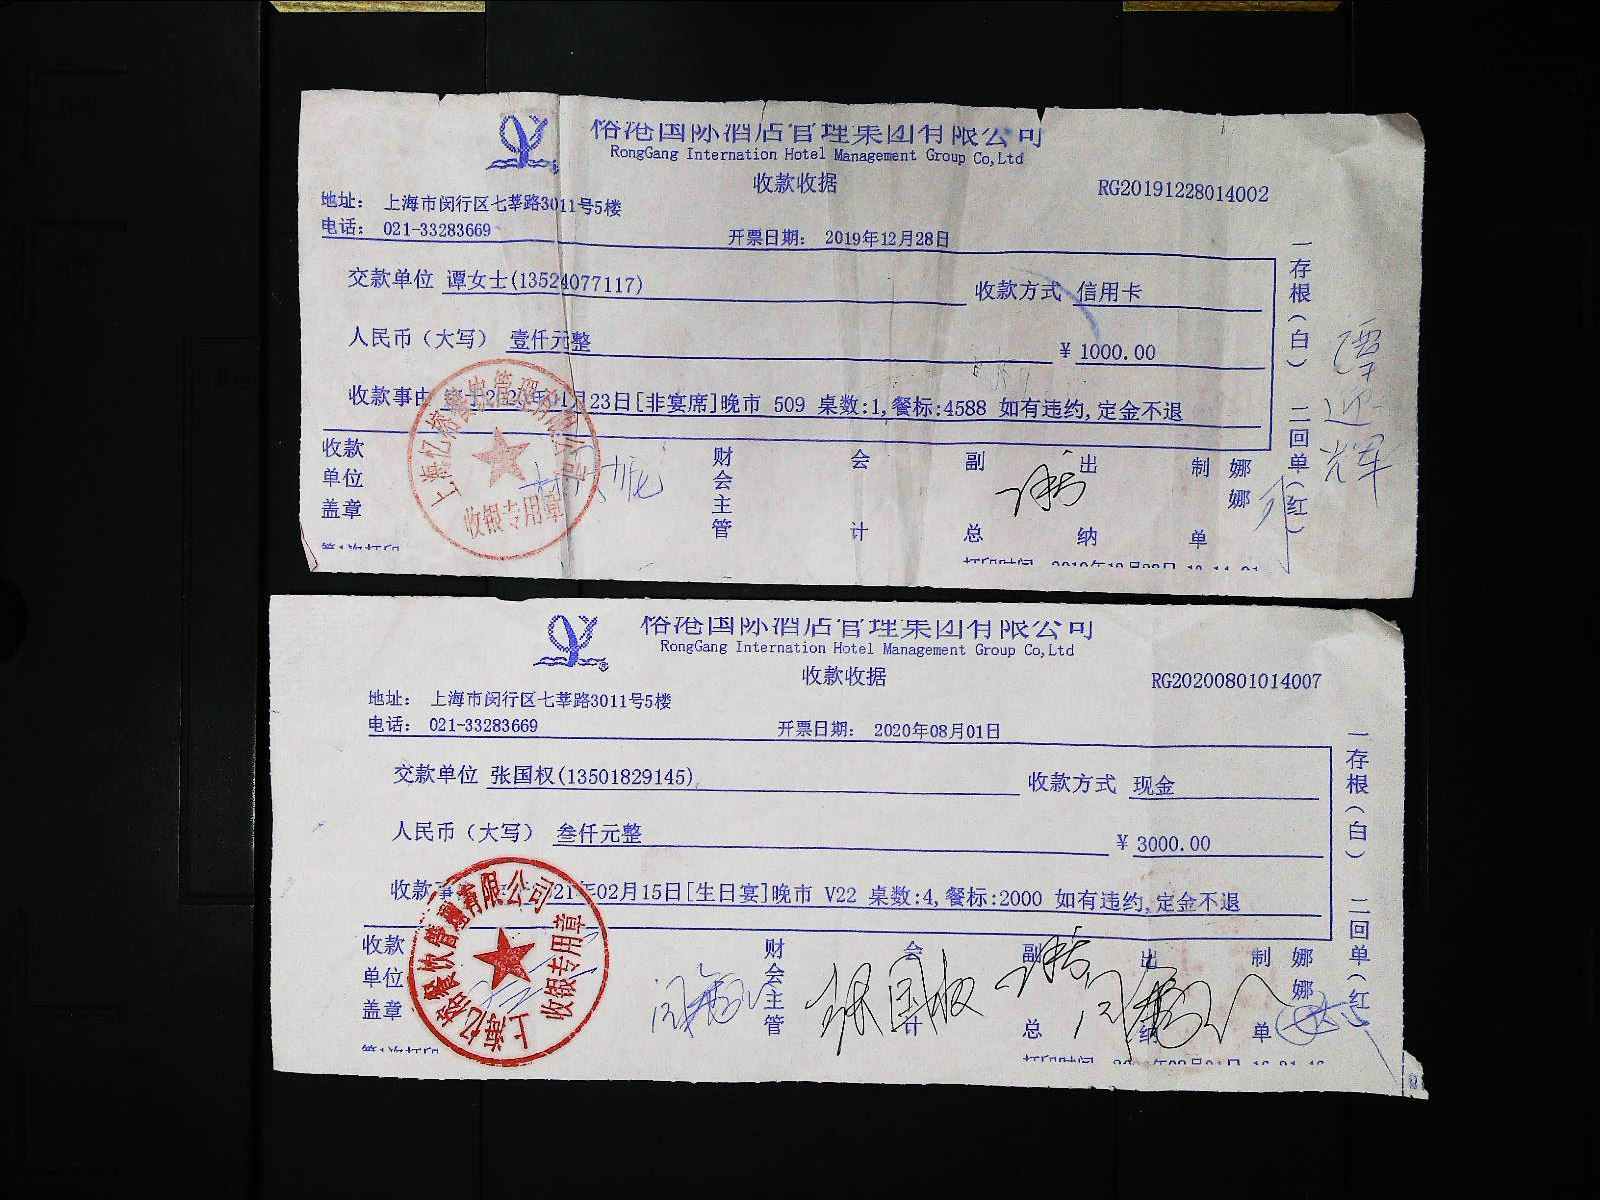 榕港国际酒店管理集团有限公司
RongGang Internation Hotel Management Group Co,Ltd
收款收据
RG20191228014002
地址： 上海市闵行区七莘路3011号5楼
电话： 021-33283669
开票日期： 2019年12月28日
交款单位 谭女士(13524077117) 收款方式 信用卡
人民币（大写） 壹仟元整 ¥ 1000.00
收款事由 月23日[非宴席]晚市 509 桌数:1,餐标:4588 如有违约,定金不退
收款单位盖章 财会主管 会计 副总 出纳 制单 娜娜
上海忆榕餐饮管理有限公司
收银专用章
一存根(白) 二回单(红)
谭迎辉
榕港国际酒店管理集团有限公司
RongGang Internation Hotel Management Group Co,Ltd
收款收据
RG20200801014007
地址： 上海市闵行区七莘路3011号5楼
电话： 021-33283669
开票日期： 2020年08月01日
交款单位 张国权(13501829145) 收款方式 现金
人民币（大写） 叁仟元整 ¥ 3000.00
收款事 21年02月15日[生日宴]晚市 V22 桌数:4,餐标:2000 如有违约,定金不退
收款单位盖章 财会主管 会计 副总 出纳 制单 娜娜
上海忆榕餐饮管理有限公司
收银专用章
张国权
一存根(白) 二回单(红)